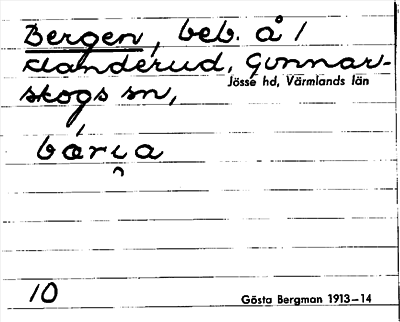 Bergen, beb. å 1
Klanderud, Gunnar-
skogs sn,
Jösse hd, Värmlands län
bǽrịa
10
Gösta Bergman 1913–14